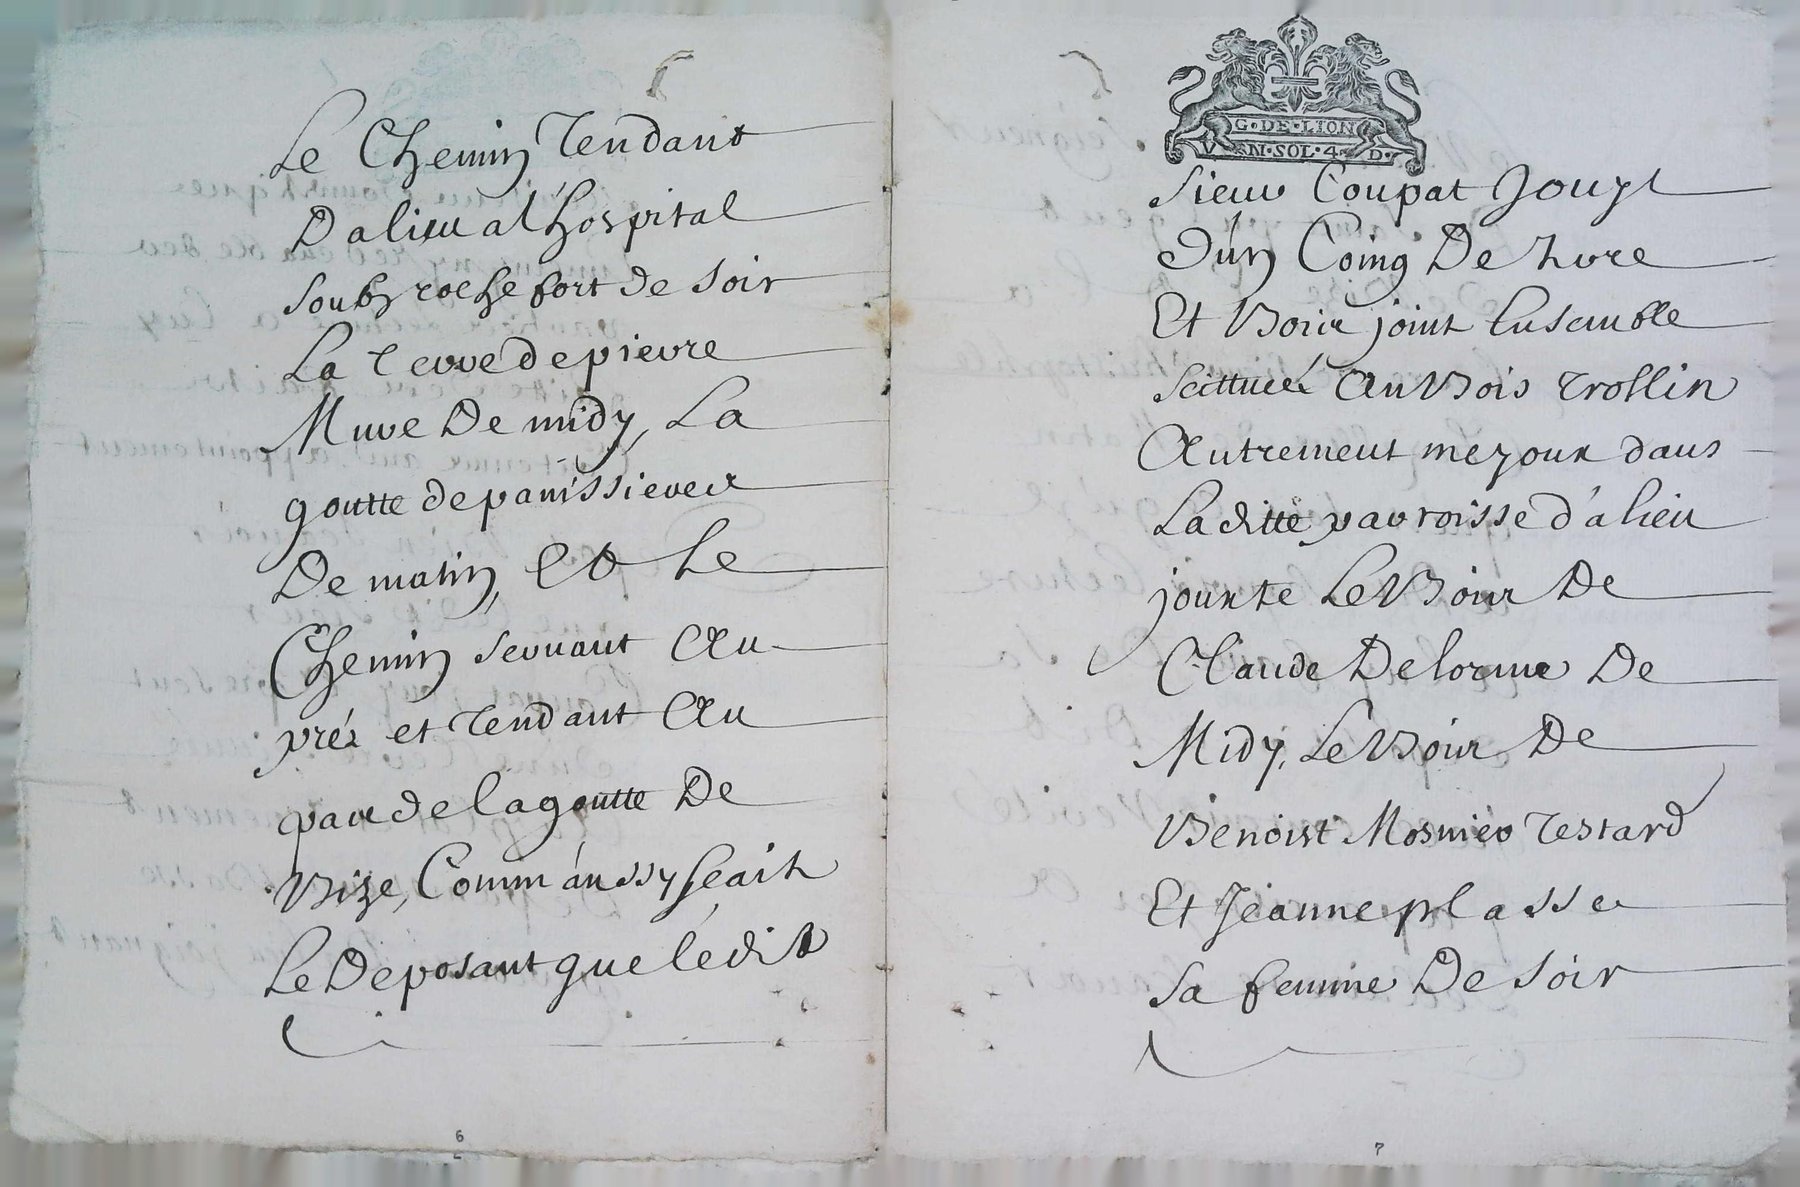 Le Chemin Tendant
Dalieu al'hospital
soubz rochefort de soir
La Terre de pierre
Mure De midy, La
goutte de panissieres
De matin, Et Le
Chemin servant Au
prés et Tendant Au
par de la goutte De
Bize, Comm'aussy scait
Le Deposant que lédit
6
G·DE·LION
VN·SOL·4·D·
sieur Coupat Jouyt
d'un Coing De Terre
Et Bois joint Ensemble
scittués Au Bois Trollin
Autrement mezoux dans
La ditte parroisse d'alieu
jouxte Le Bois De
Claude Delorme De
Midy, Le Bois De
Benoist Mosnier Testard
Et Jeanne plasse
sa femme De soir
7